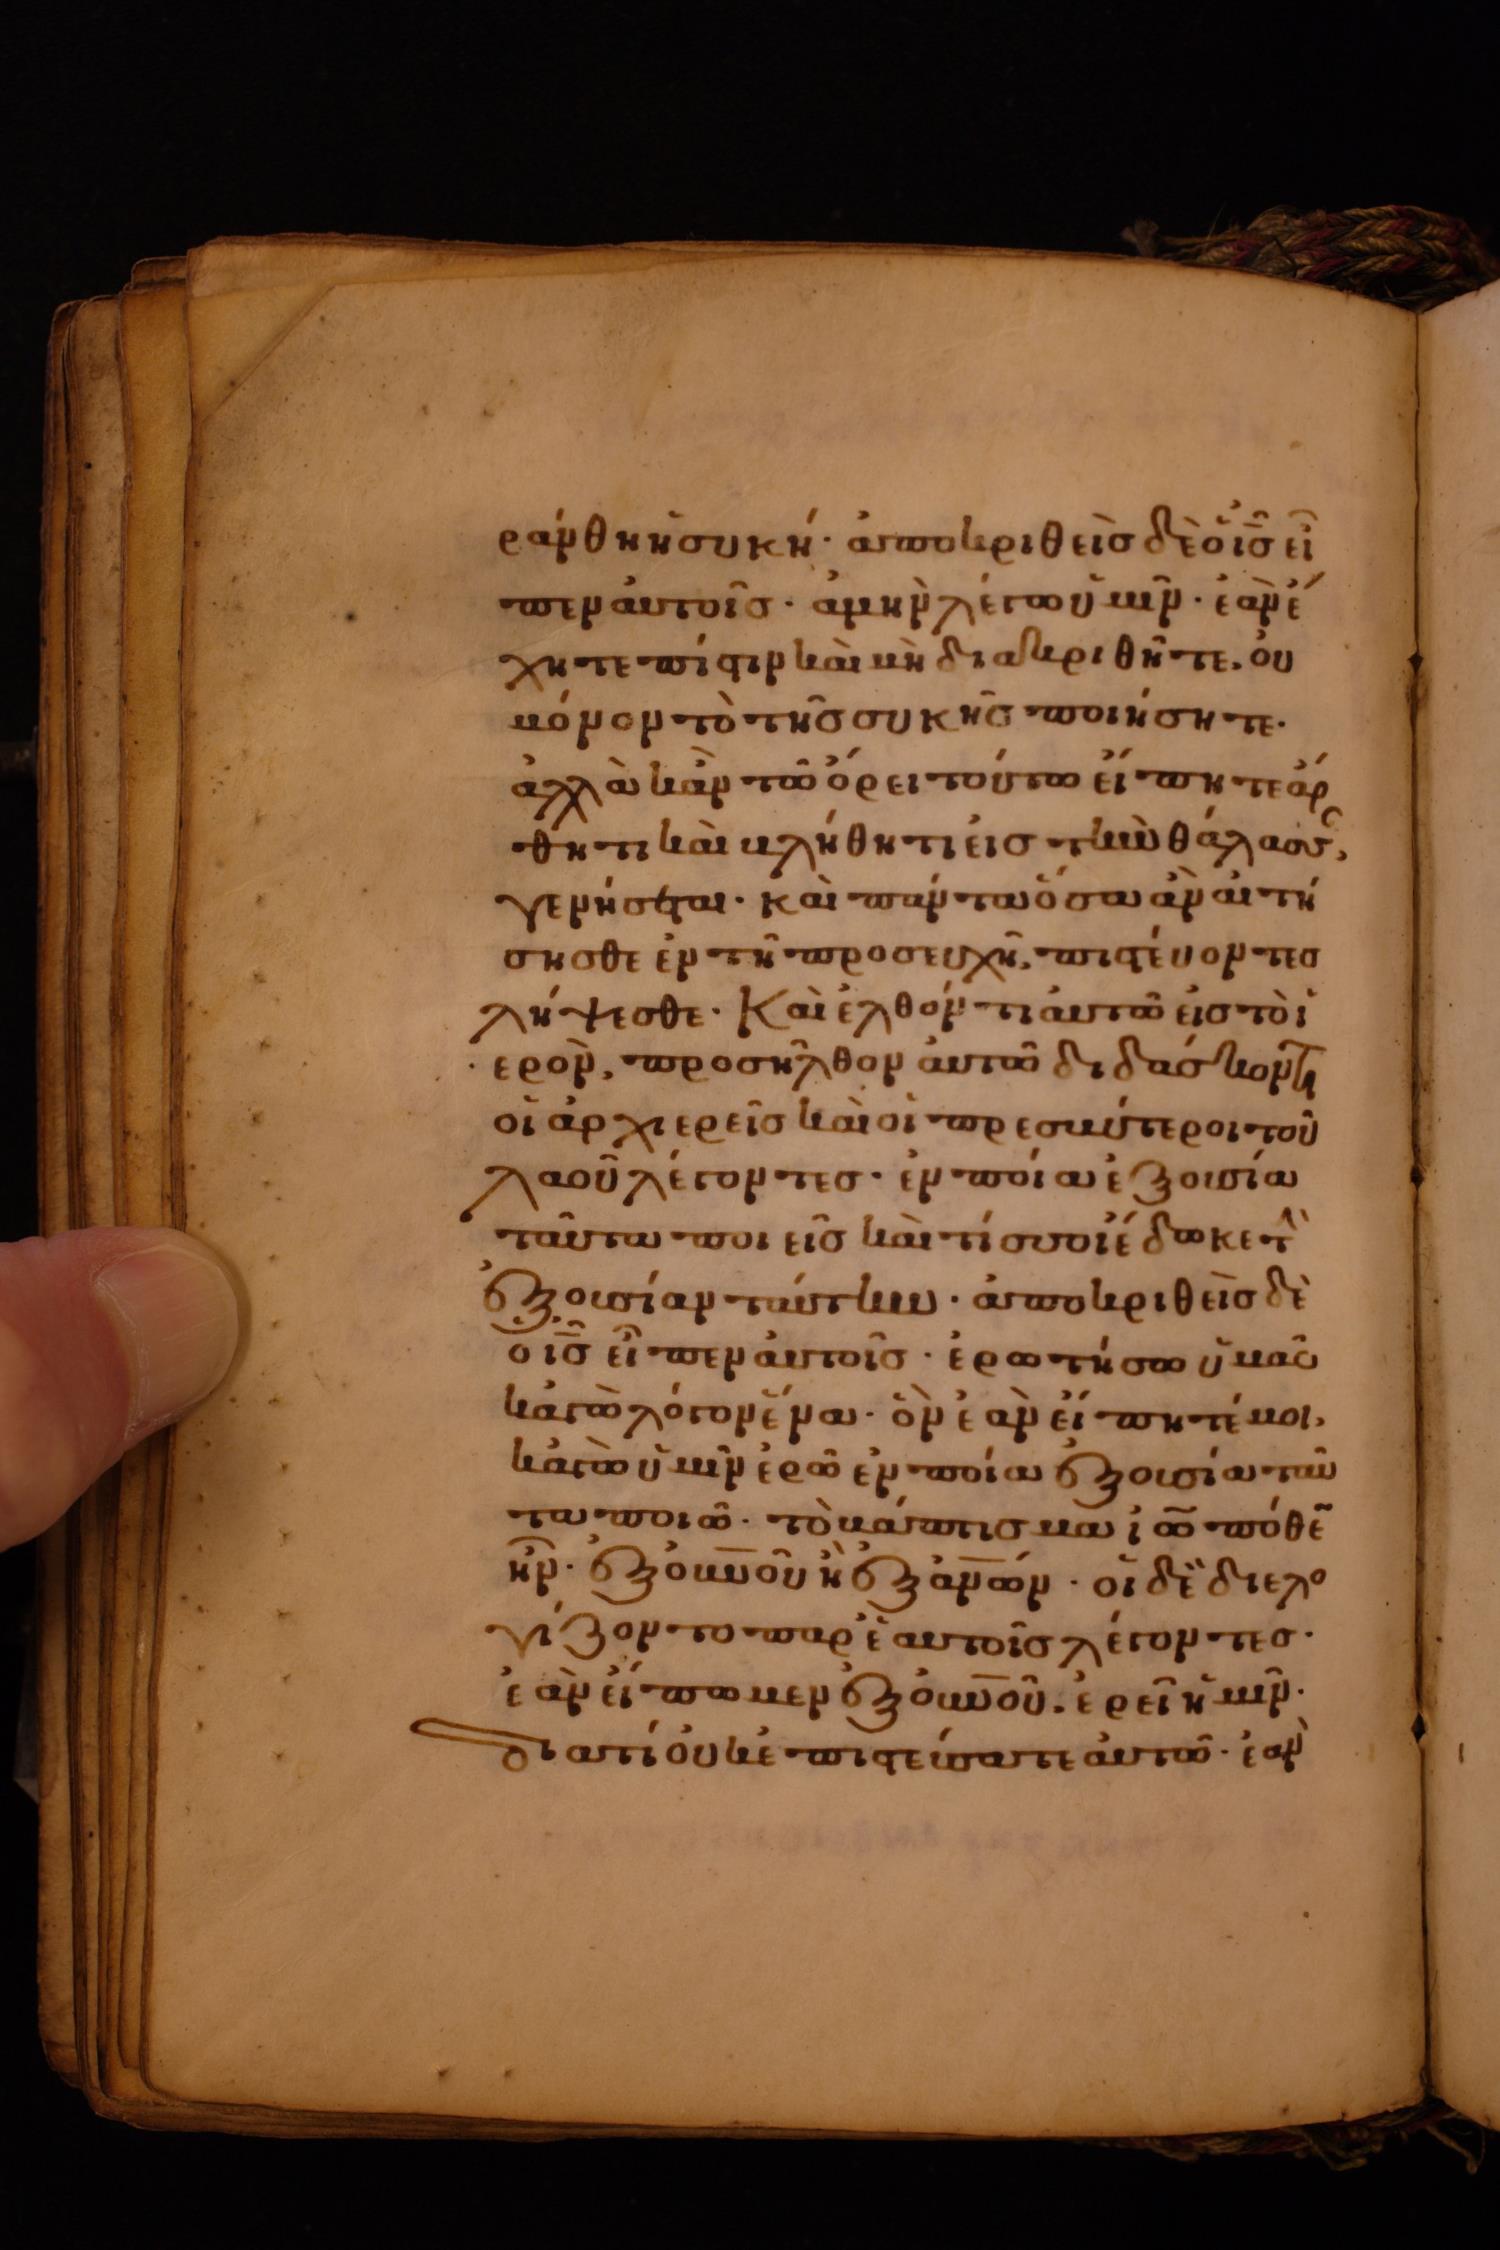 ράνθη ἡ συκῆ· ἀποκριθεὶς δὲ ὁ ις εἶ
πεν αὐτοῖς· ἀμὴν λέγω ὑμῖν· ἐὰν ἔ
χητε πίστιν καὶ μὴ διακριθῆτε, οὐ
μόνον τὸ τῆς συκῆς ποιήσητε·
ἀλλὰ κἂν τῶ ὄρει τούτω εἴπητε ἄρ
θητι καὶ βλήθητι εἰς τὴν θάλασς,
γενήσεται· καὶ πάντα ὅσα ἂν αἰτή
σησθε ἐν τῆ προσευχῆ, πιστεύοντες
λήψεσθε· Καὶ ἐλθόντι αὐτῶ εἰς τὸ ἱ
ερὸν, προσῆλθον αὐτῶ διδάσκοντι
οἱ ἀρχιερεῖς καὶ οἱ πρεσβύτεροι τοῦ
λαοῦ λέγοντες· ἐν ποία ἐξουσία
ταῦτα ποιεῖς καὶ τίς σοι ἔδωκε τὴ
ἐξουσίαν ταύτην· ἀποκριθεὶς δὲ
ὁ ις εἶπεν αὐτοῖς· ἐρωτήσω ὑμᾶς
κἀγὼ λόγον ἕνα· ὃν ἐὰν εἴπητέ μοι,
κἀγὼ ὑμῖν ἐρῶ ἐν ποία ἐξουσία ταῦ
τα ποιῶ· τὸ βάπτισμα ἰω πόθε
ἦν· ἐξ οὐνοῦ ἢ ἐξ ανων· οἱ δὲ διελο
γίζοντο παρ' ἑαυτοῖς λέγοντες·
ἐὰν εἴπωμεν ἐξ οὐνοῦ, ἐρεῖ ἡμῖν·
διατί οὐκ ἐπιστεύσατε αὐτῶ· ἐὰν